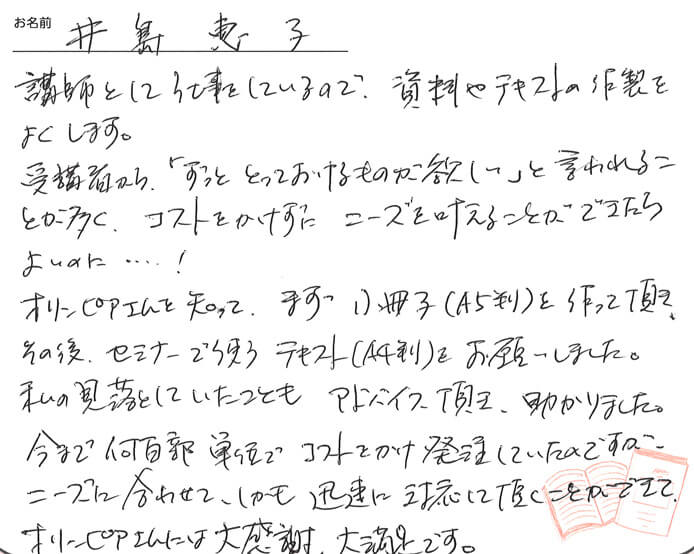 お名前 井島 恵子
講師として仕事をしているので、資料やテキストの作製を
よくします。
受講者から、「ずっととっておけるものが欲しい」と言われるこ
とが多く、コストをかけずに ニーズを叶えることができたら
よいのに…..!
オリンピアエムを知って、まず 小冊子(A5判)を作って頂き、
その後、セミナーで使う テキスト(A4判)を お願いしました。
私の見落としていたことも アドバイス頂き、助かりました。
今まで何百部 単位で コストをかけ 発注していたのですが、
ニーズに合わせて、しかも 迅速に対応して頂くことができて、
オリンピアエムには 大感謝、大満足です。